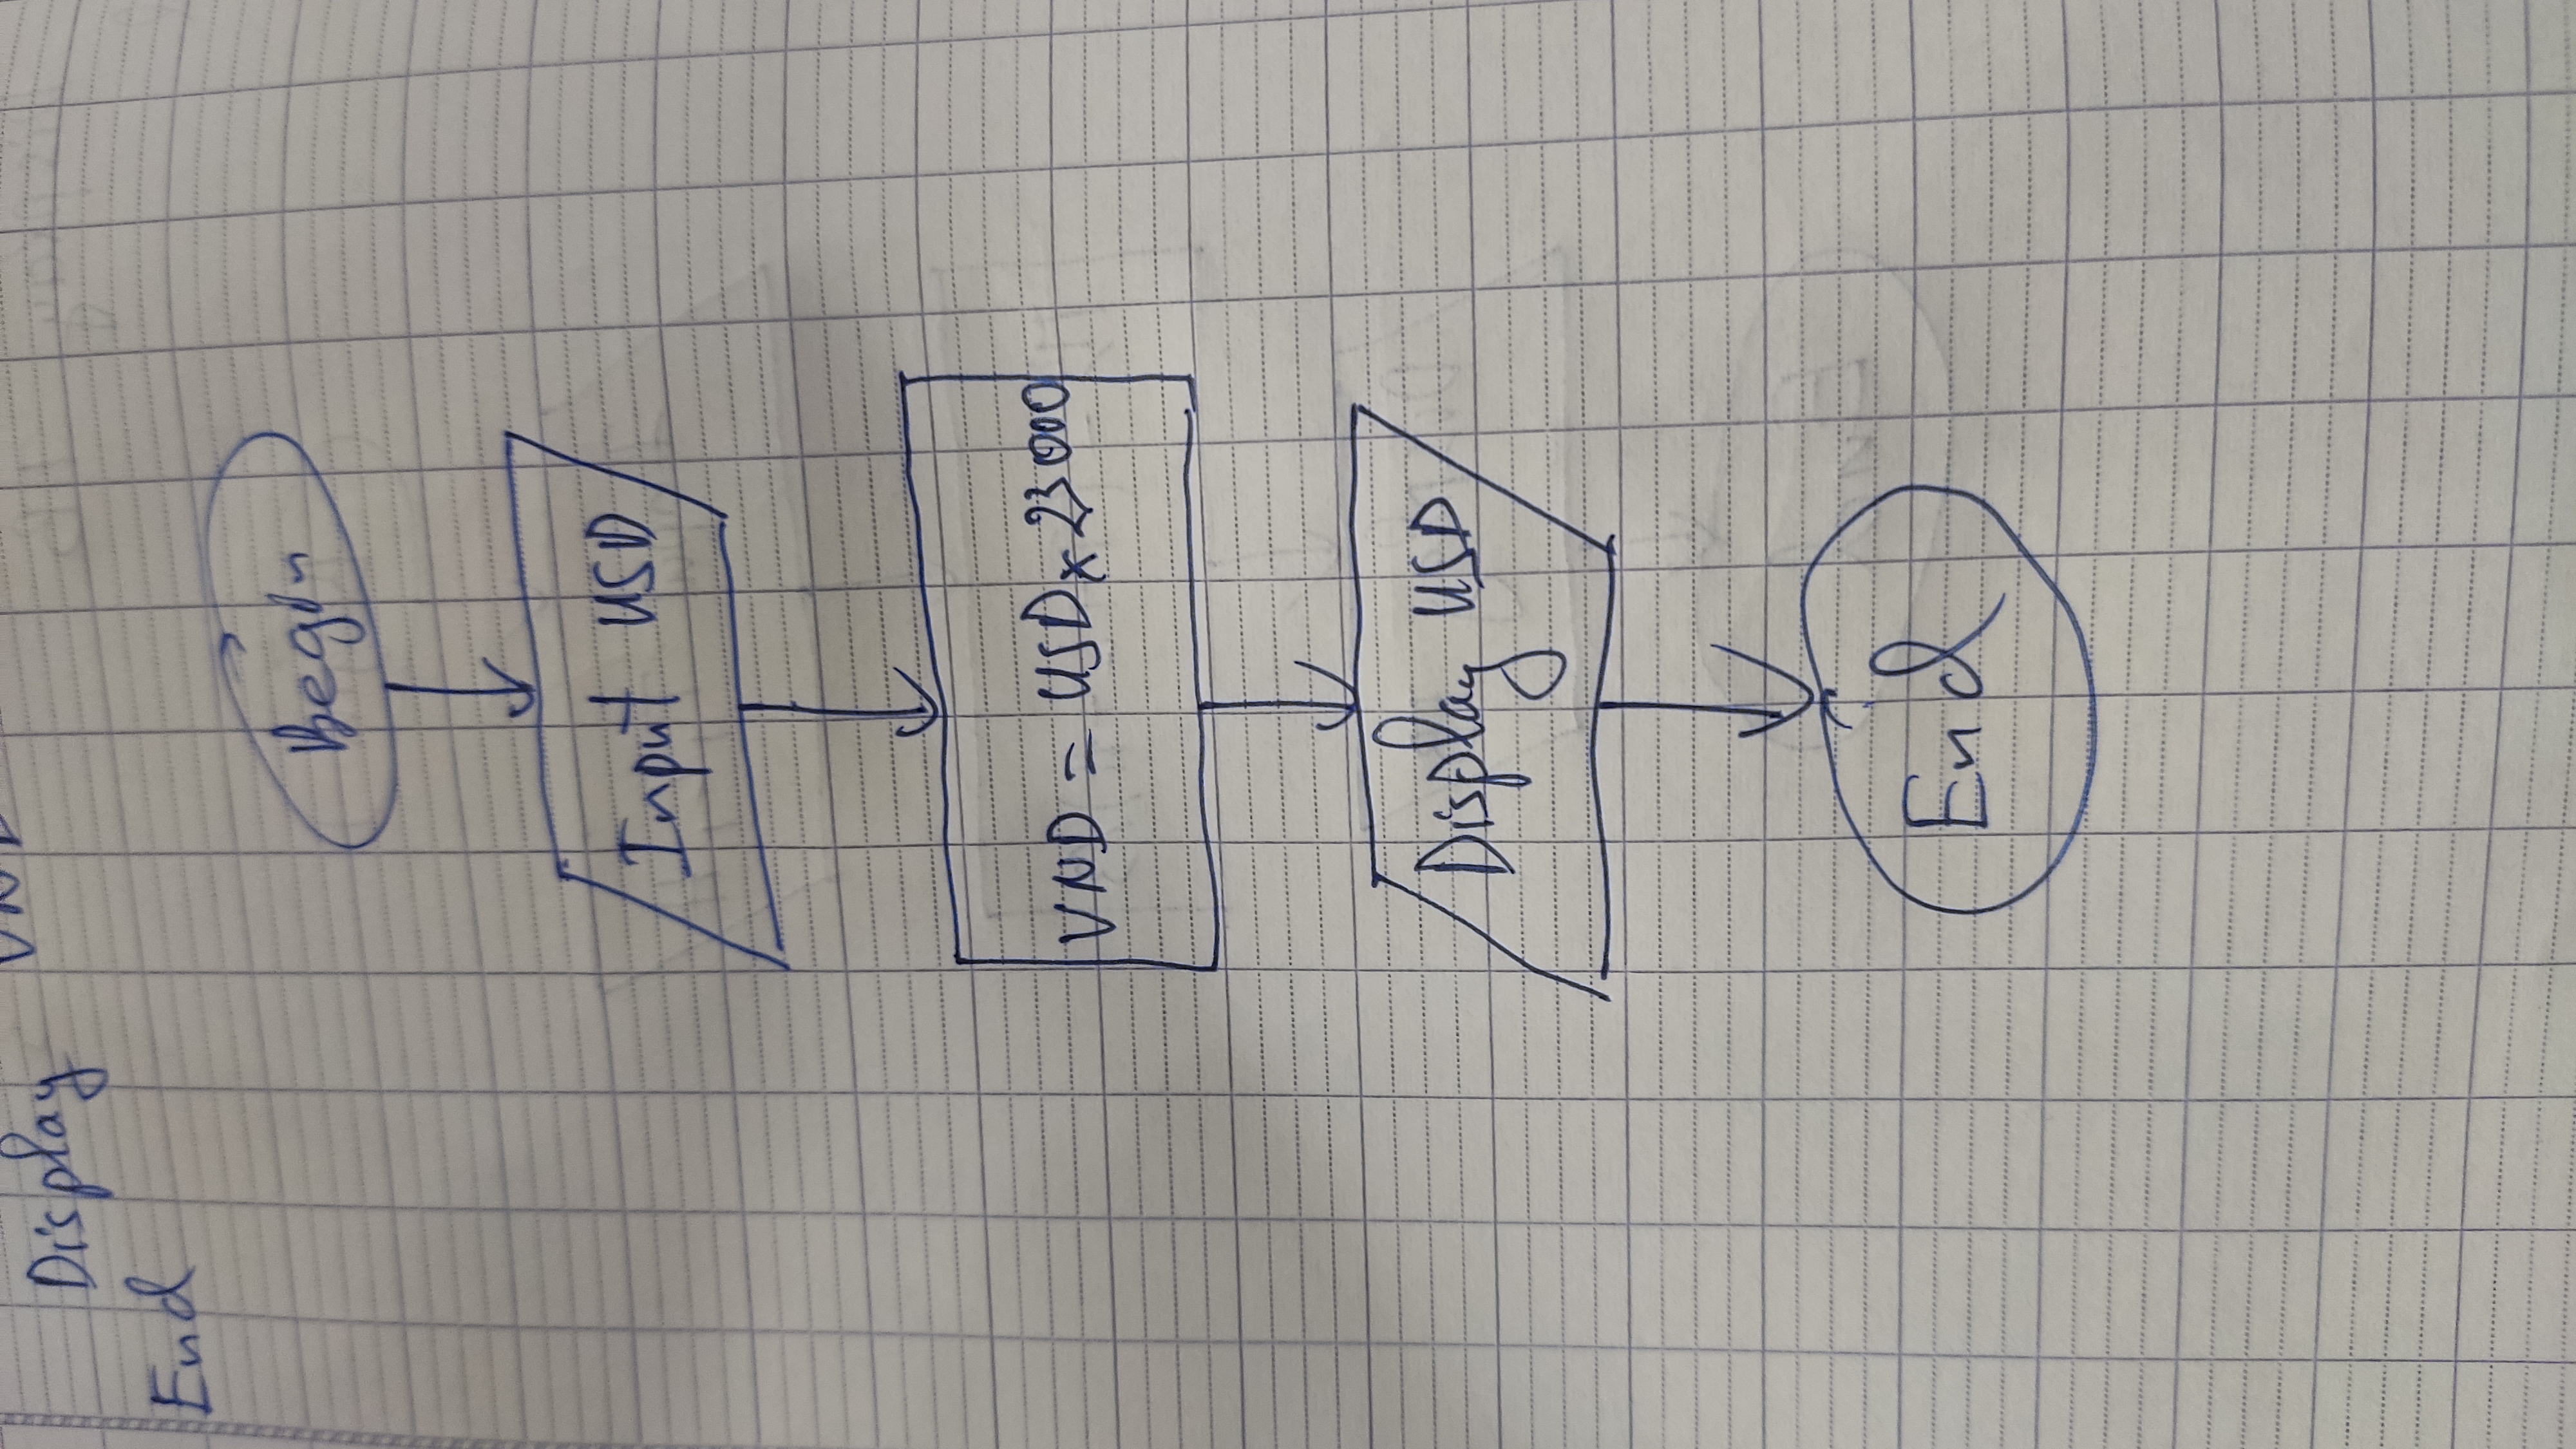 Display VND
End
Begin
Input USD
VND = USD x 23000
Display USD
End